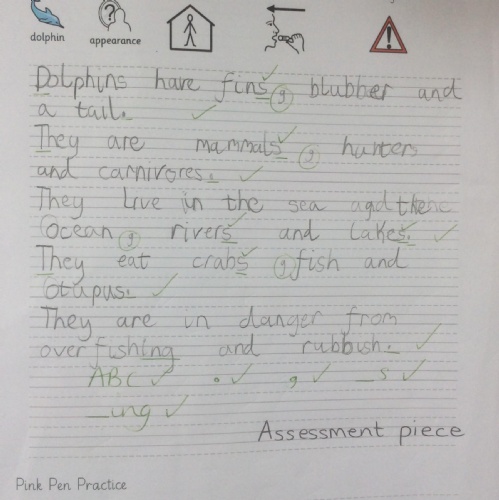 dolphin appearance
Dolphins have fins, blubber and
a tail.
They are mammals, hunters
and carnivores.
They live in the sea and the
Ocean, rivers and lakes.
They eat crabs, fish and
Otupus.
They are in danger from
over fishing and rubbish.
ABC . , _s
_ing
Assessment piece
Pink Pen Practice